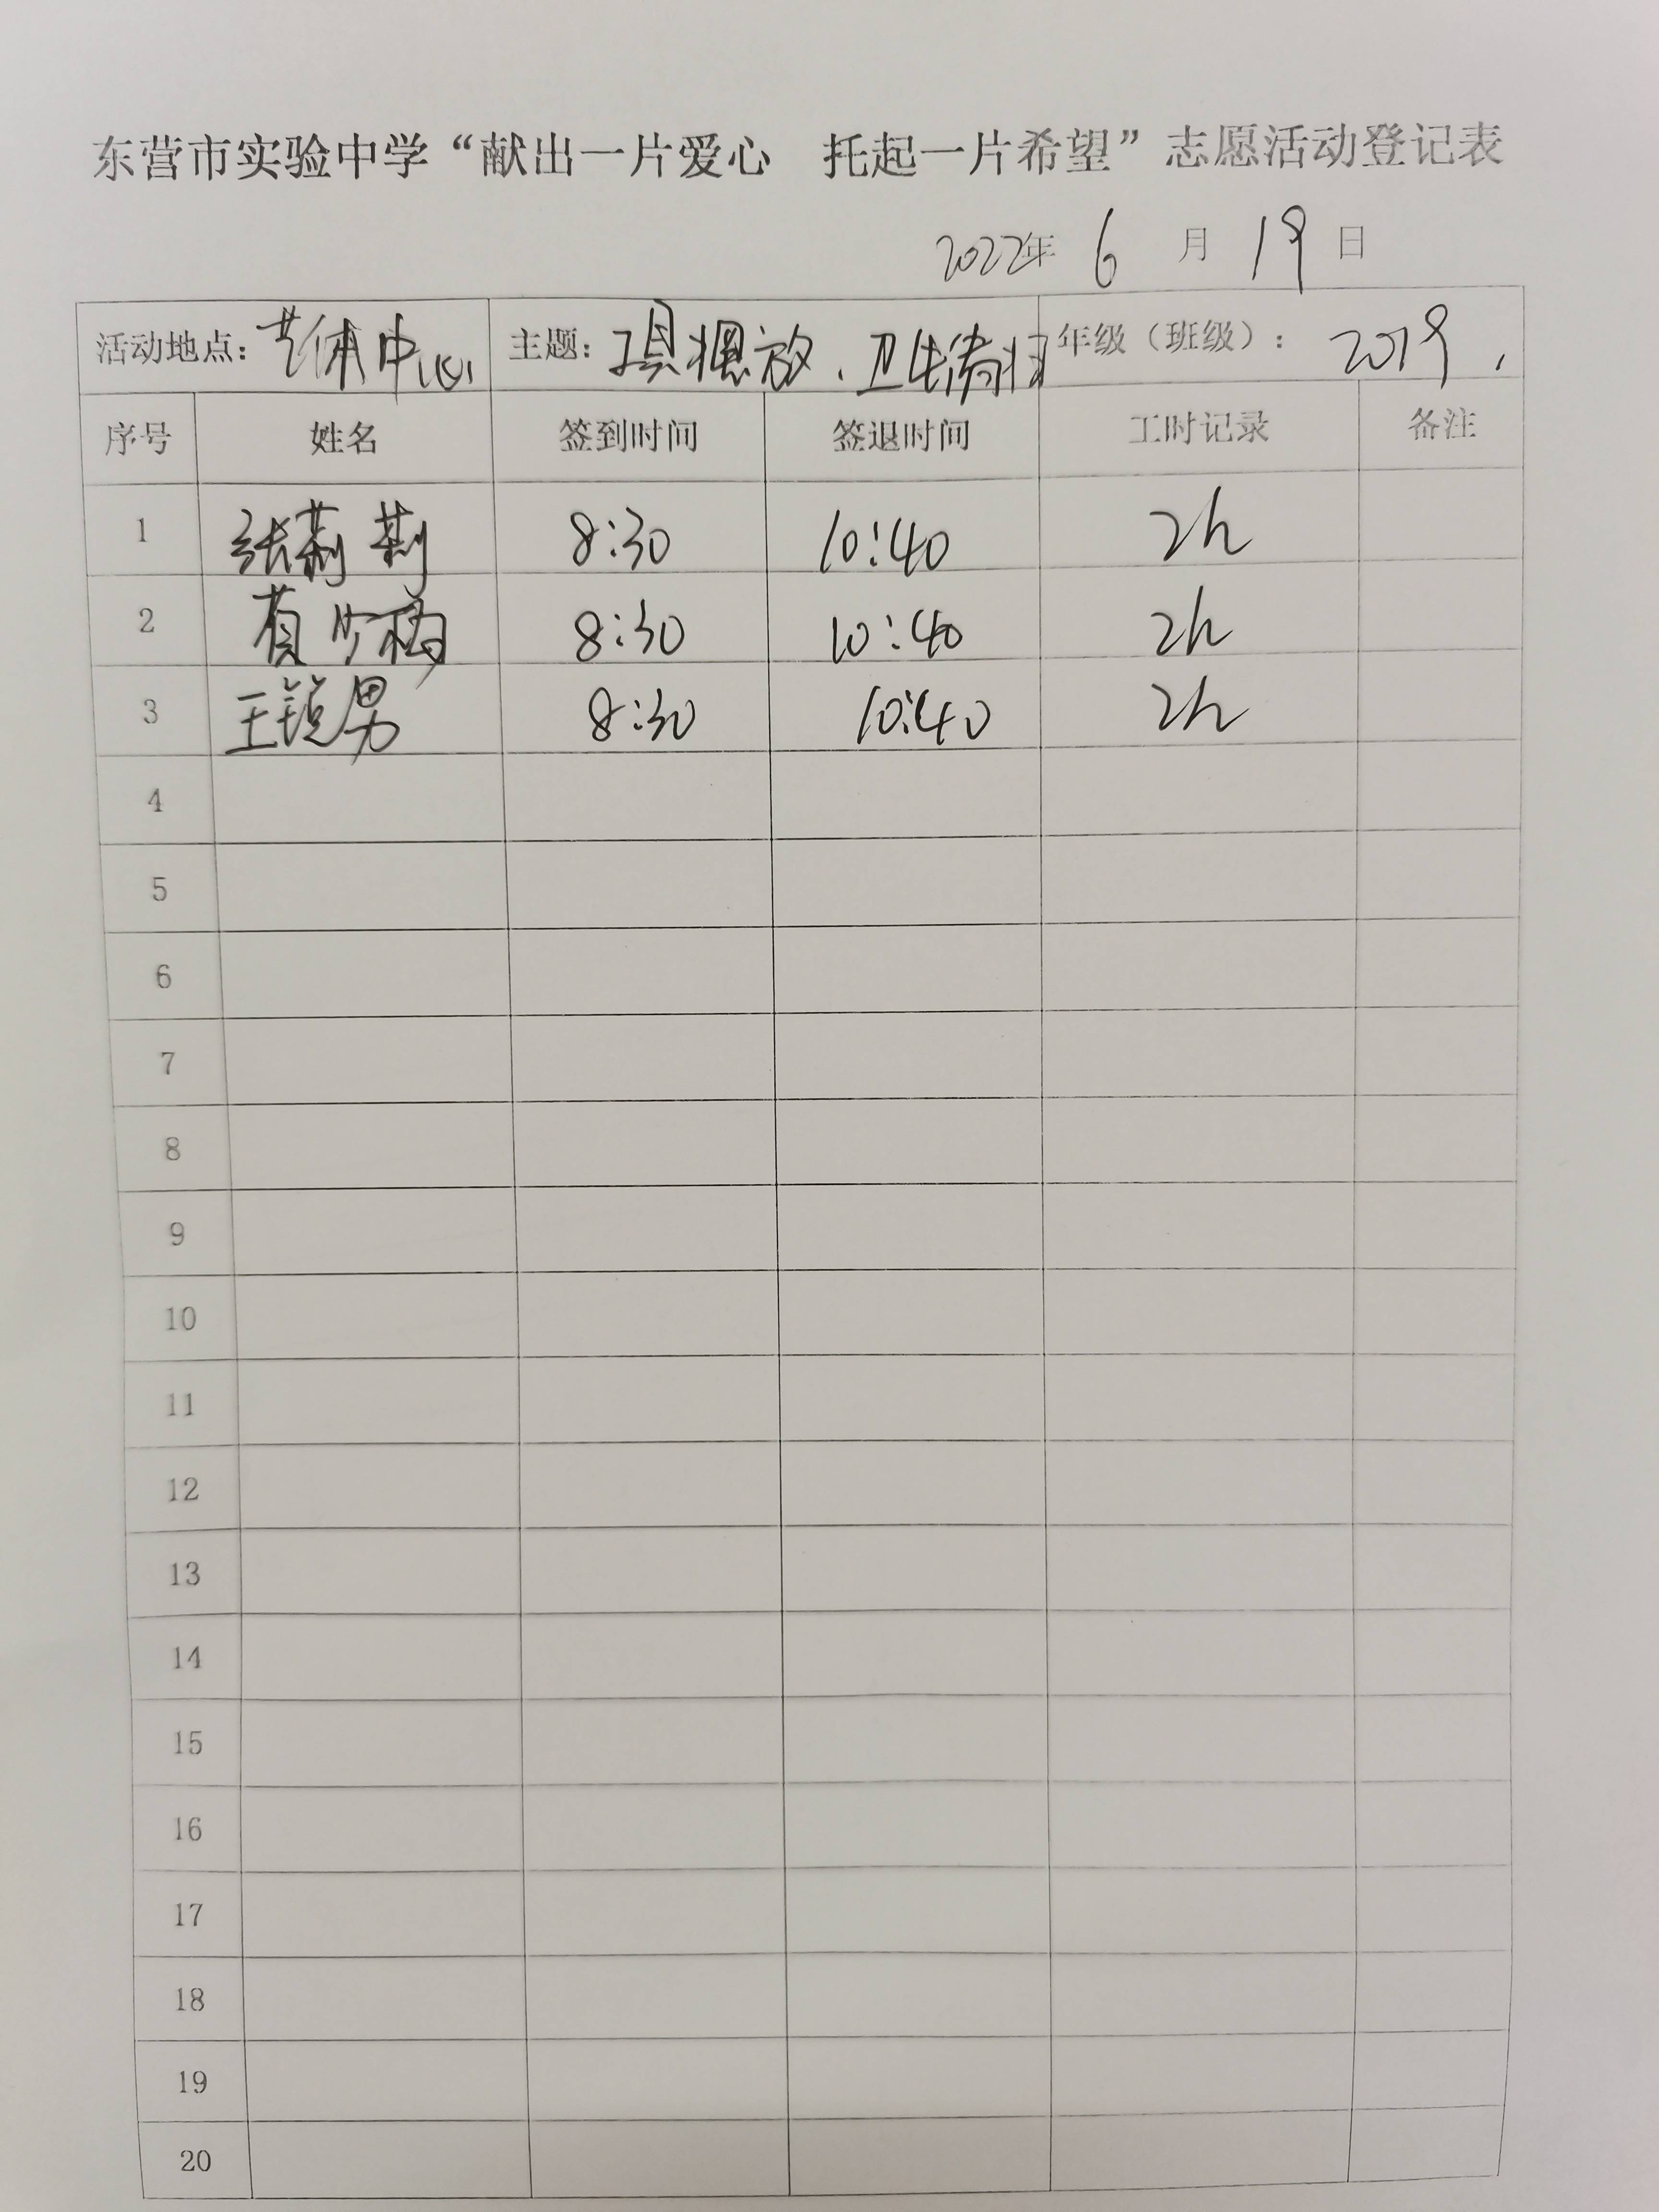 东营市实验中学“献出一片爱心 托起一片希望”志愿活动登记表
2022年 6 月 19 日
活动地点：艺体中心 主题：工具摆放、卫生清扫 年级（班级）：2019
序号 姓名 签到时间 签退时间 工时记录 备注
1 张莉莉 8:30 10:40 2h
2 8:30 10:40 2h
3 王锐男 8:30 10:40 2h
4
5
6
7
8
9
10
11
12
13
14
15
16
17
18
19
20